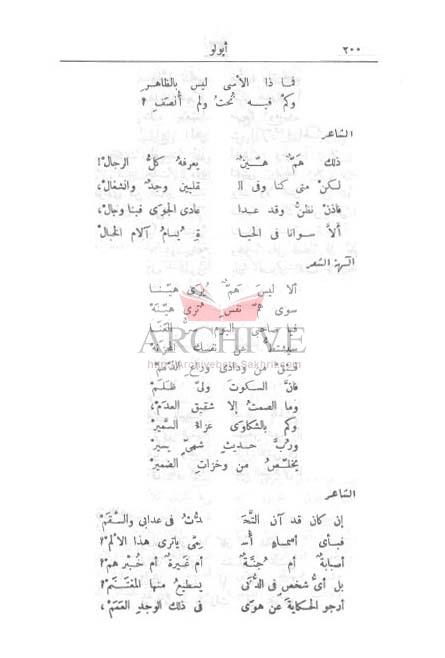 ٢٠٠
أبولو
فما ذا الأسى ليس بالظاهرِ
وكم فيه نُحتُ ولم أُنصَفِ؟
الشاعر
ذلك همٌّ هيّنٌ يعرفهُ كلُّ الرجالْ!
لكنْ متى كنا وفى الـ قلبين وجدٌ وانشغالْ،
فاذنْ نظنُّ وقد عدا عادى الجوى فينا وجالْ،
ألاَّ سوانا فى الحيا ةِ يُسامُ آلام الخبالْ
آلهة الشعر
ألا ليس همٌّ يُرَى هيّنـا
سوى همّ نفسٍ تُرَى هيّنَهْ
فيا صاحبى اليوم
عن نفسك المحزنهْ
وثِقْ من ودادى وداعِ
فانَّ السكوتَ ولىُّ
وما الصمتُ إلا شقيق العدمْ،
وكم بالشكاوى عزاءُ السميرْ
ورُبَّ حديثٍ شهىٍّ يسيرْ
يخلّصُ من وخزاتِ الضميرْ
الشاعر
إن كان قد آن التَّحَـ ـدُّثُ فى عذابى والسقمْ
فبأى أسماءٍ أُسـ ـمّى ياترى هذا الألمْ؟
أصبابةٌ أم جُنّةٌ أم غَيرةٌ أم خُبْرُ هَمْ؟
بل أىُّ شخصٍ فى الدُّنى يسطيعُ منها المغتنمْ؟
أرجو الحكايةَ عن هوى فى ذلك الوجدِ العممْ،